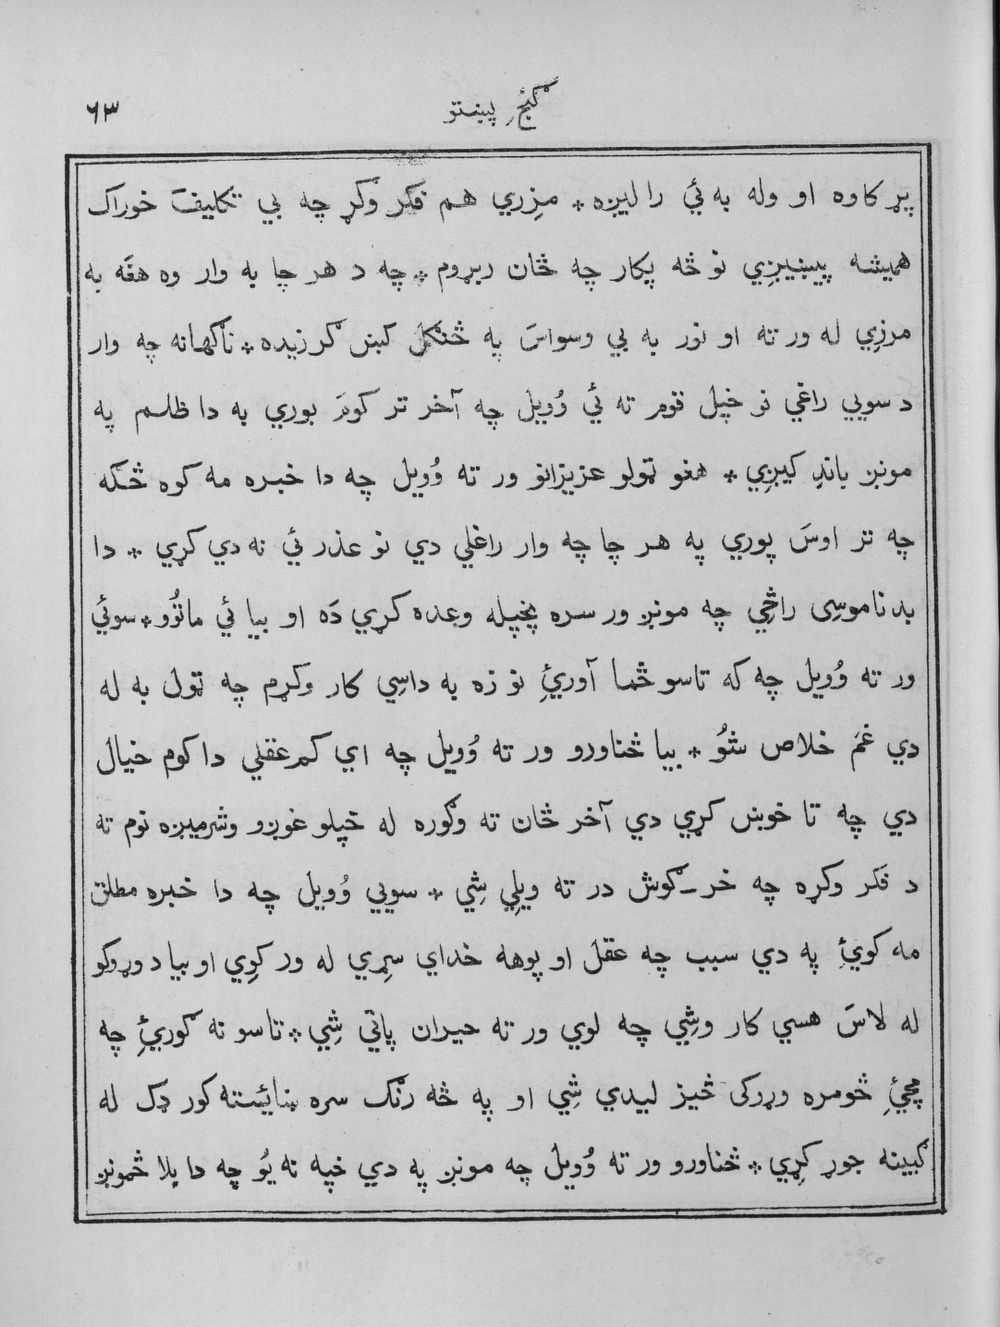 گنج پښتو ٦٣
پړ کاوه او وله به ئي را ليږه * مزري هم فکر وکړ چه بي تکليف خوراک
هميشه پيښيږي نو څه پکار چه ځان ربړوم * چه د هر چا به وار وه هغه به
مزري له ور ته او نور به بي وسواس په ځنګل کښ کرزيده * ناګهانه چه وار
د سويي راغي نو خپل قوم ته ئي وُويل چه آخر تر کوم بوري به دا ظلم په
مونږ باندِ کيږي * هغو ټولو عزيزانو ور ته وُويل چه دا خبره مه کوه ځکه
چه تر اوسَ پوري په هر چا چه وار راغلي دي نو عذر ئي نه دي کړي * دا
بد ناموسِی راځِي چه مونږ ور سره پخپله وعده کړي دَه او بيا ئي ماتوُو * سوئي
ور ته وُويل چه که تاسو ځما آورئِ نو زه به داسِي کار وکړم چه ټول به له
دي غمَ خلاص شوُ * بيا ځناورو ور ته وُويل چه اي کم عقلي دا کوم خيال
دي چه تا خوښ کړي دي آخر ځان ته وګوره له خپلو غوږو وشرميږه نوم ته
د فکر وکړه چه خر-ګوش در ته ويلِي شِي * سويي وُويل چه دا خبره مطلق
مه کوئِ په دي سبب چه عقل او پوهه خداي سړِي له ور کوِي او بيا د وړوکو
له لاسَ هسي کار وشِي چه لوي ور ته حيران پاتي شِي * تاسو نه ګورئِ چه
مچئِ څومره وړوکی څيز ليدي شِي او په څه رنګ سره ښائسته کور ډک له
ګبينه جوړ کړِي * ځناورو ور ته وُويل چه مونږ په دي خپه نه يوُ چه دا بلا ځمونږ